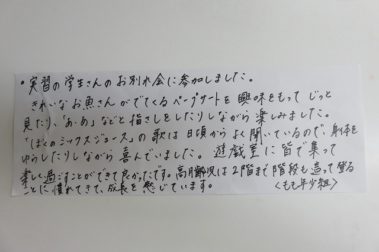 ・実習の学生さんのお別れ会に参加しました。
きれいなお魚さんがでてくるペープサートを興味をもってじっと
見たり、「あ、め」などと指さしをしたりしながら楽しみました。
「ぼくのミックスジュース」の歌は日頃からよく聞いているので、身体を
ゆらしたりしながら喜んでいました。遊戯室に皆で集って
楽しく過ごすことができて良かったです。高月齢児は2階まで階段も這って登る
ことに慣れてきて、成長を感じています。 〈もも年少組〉